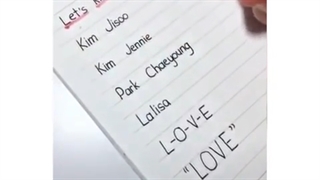 Let's
Kim Jisoo
Kim Jennie
Park Chaeyoung
Lalisa
L-O-V-E
"LOVE"